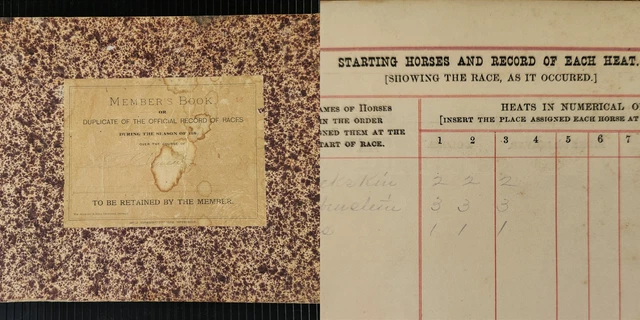 MEMBER'S BOOK,
OR
DUPLICATE OF THE OFFICIAL RECORD OF RACES
DURING THE SEASON OF 188
OVER THE COURSE OF
TO BE RETAINED BY THE MEMBER.
STARTING HORSES AND RECORD OF EACH HEAT.
[SHOWING THE RACE, AS IT OCCURED.]
AMES OF HORSES
N THE ORDER
NED THEM AT THE
TART OF RACE.
HEATS IN NUMERICAL O
[INSERT THE PLACE ASSIGNED EACH HORSE AT
1 2 3 4 5 6 7
2 2 2
3 3 3
1 1 1